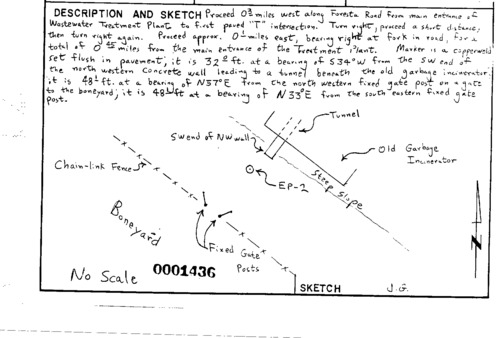 DESCRIPTION AND SKETCH Proceed 0³ miles west along Foresta Road from main entrance of
Wastewater Treatment Plant to first paved "T" intersection. Turn right, proceed a short distance,
then turn right again. Proceed approx. 0¹ miles east, bearing right at fork in road, for a
total of miles from the main entrance of the Treatment Plant. Marker is a copperweld
set flush in pavement; it is 32⁰ ft. at a bearing of S34°W from the SW end of
the north western concrete wall leading to a tunnel beneath the old garbage incinerator.
it is 48¹ ft. at a bearing of N57°E from the north western fixed gate post on a gate
to the boneyard; it is 48¹ ft at a bearing of N33°E from the south eastern fixed gate
post.
Tunnel
SW end of NW wall
Old Garbage
Incinerator
Chain-link Fence
EP-2
Steep Slope
Boneyard
Fixed Gate
Posts
N
No Scale
0001436
SKETCH
J.G.